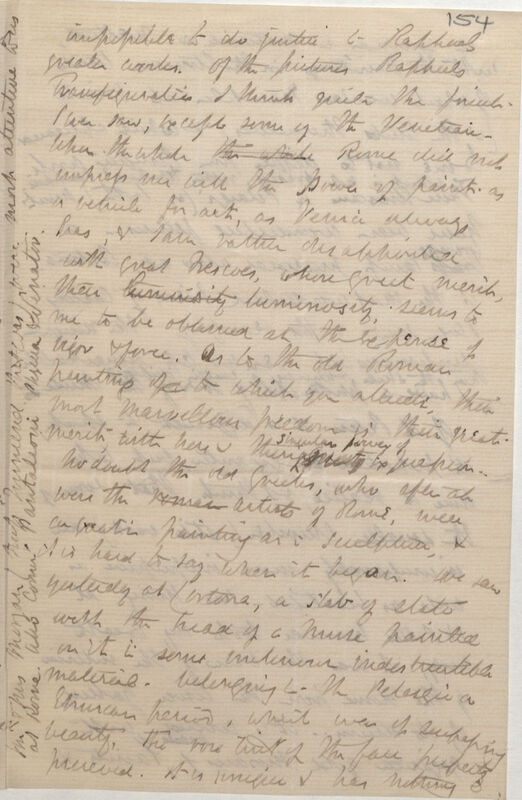 154
impossible to do justice to Raphael's
greater works. Of the pictures Raphaels
Transfiguration I think quite the finest
I ever saw, except some of the Venetian.
Upon the whole the whole Rome did not
impress me with the power of paint as
a vehicle for art, as Venice always
has, & I am rather disappointed
with great Frescoes, whose great merit,
their luminosity luminosity, seems to
me to be obtained at the expense of
vigor & force. As to the old Roman
painting to which you allude, their
most marvellous freedom is their great
merit both here & their singular power of expression.
No doubt the old Greeks, who after all
were the roman artists of Rome, were
as great in painting as in sculpture, &
it is hard to say where it began. We saw
yesterday at Cortona, a slab of slate
with the head of a Muse painted
on it in some unknown indestructible
material. belonging to the Pelasgic or
Etruscan period, which was of surpassing
beauty, the very tint of the face perfectly
preserved. It is unique & has nothing
most attentive to us
at Rome also Comm. Pantaleoni